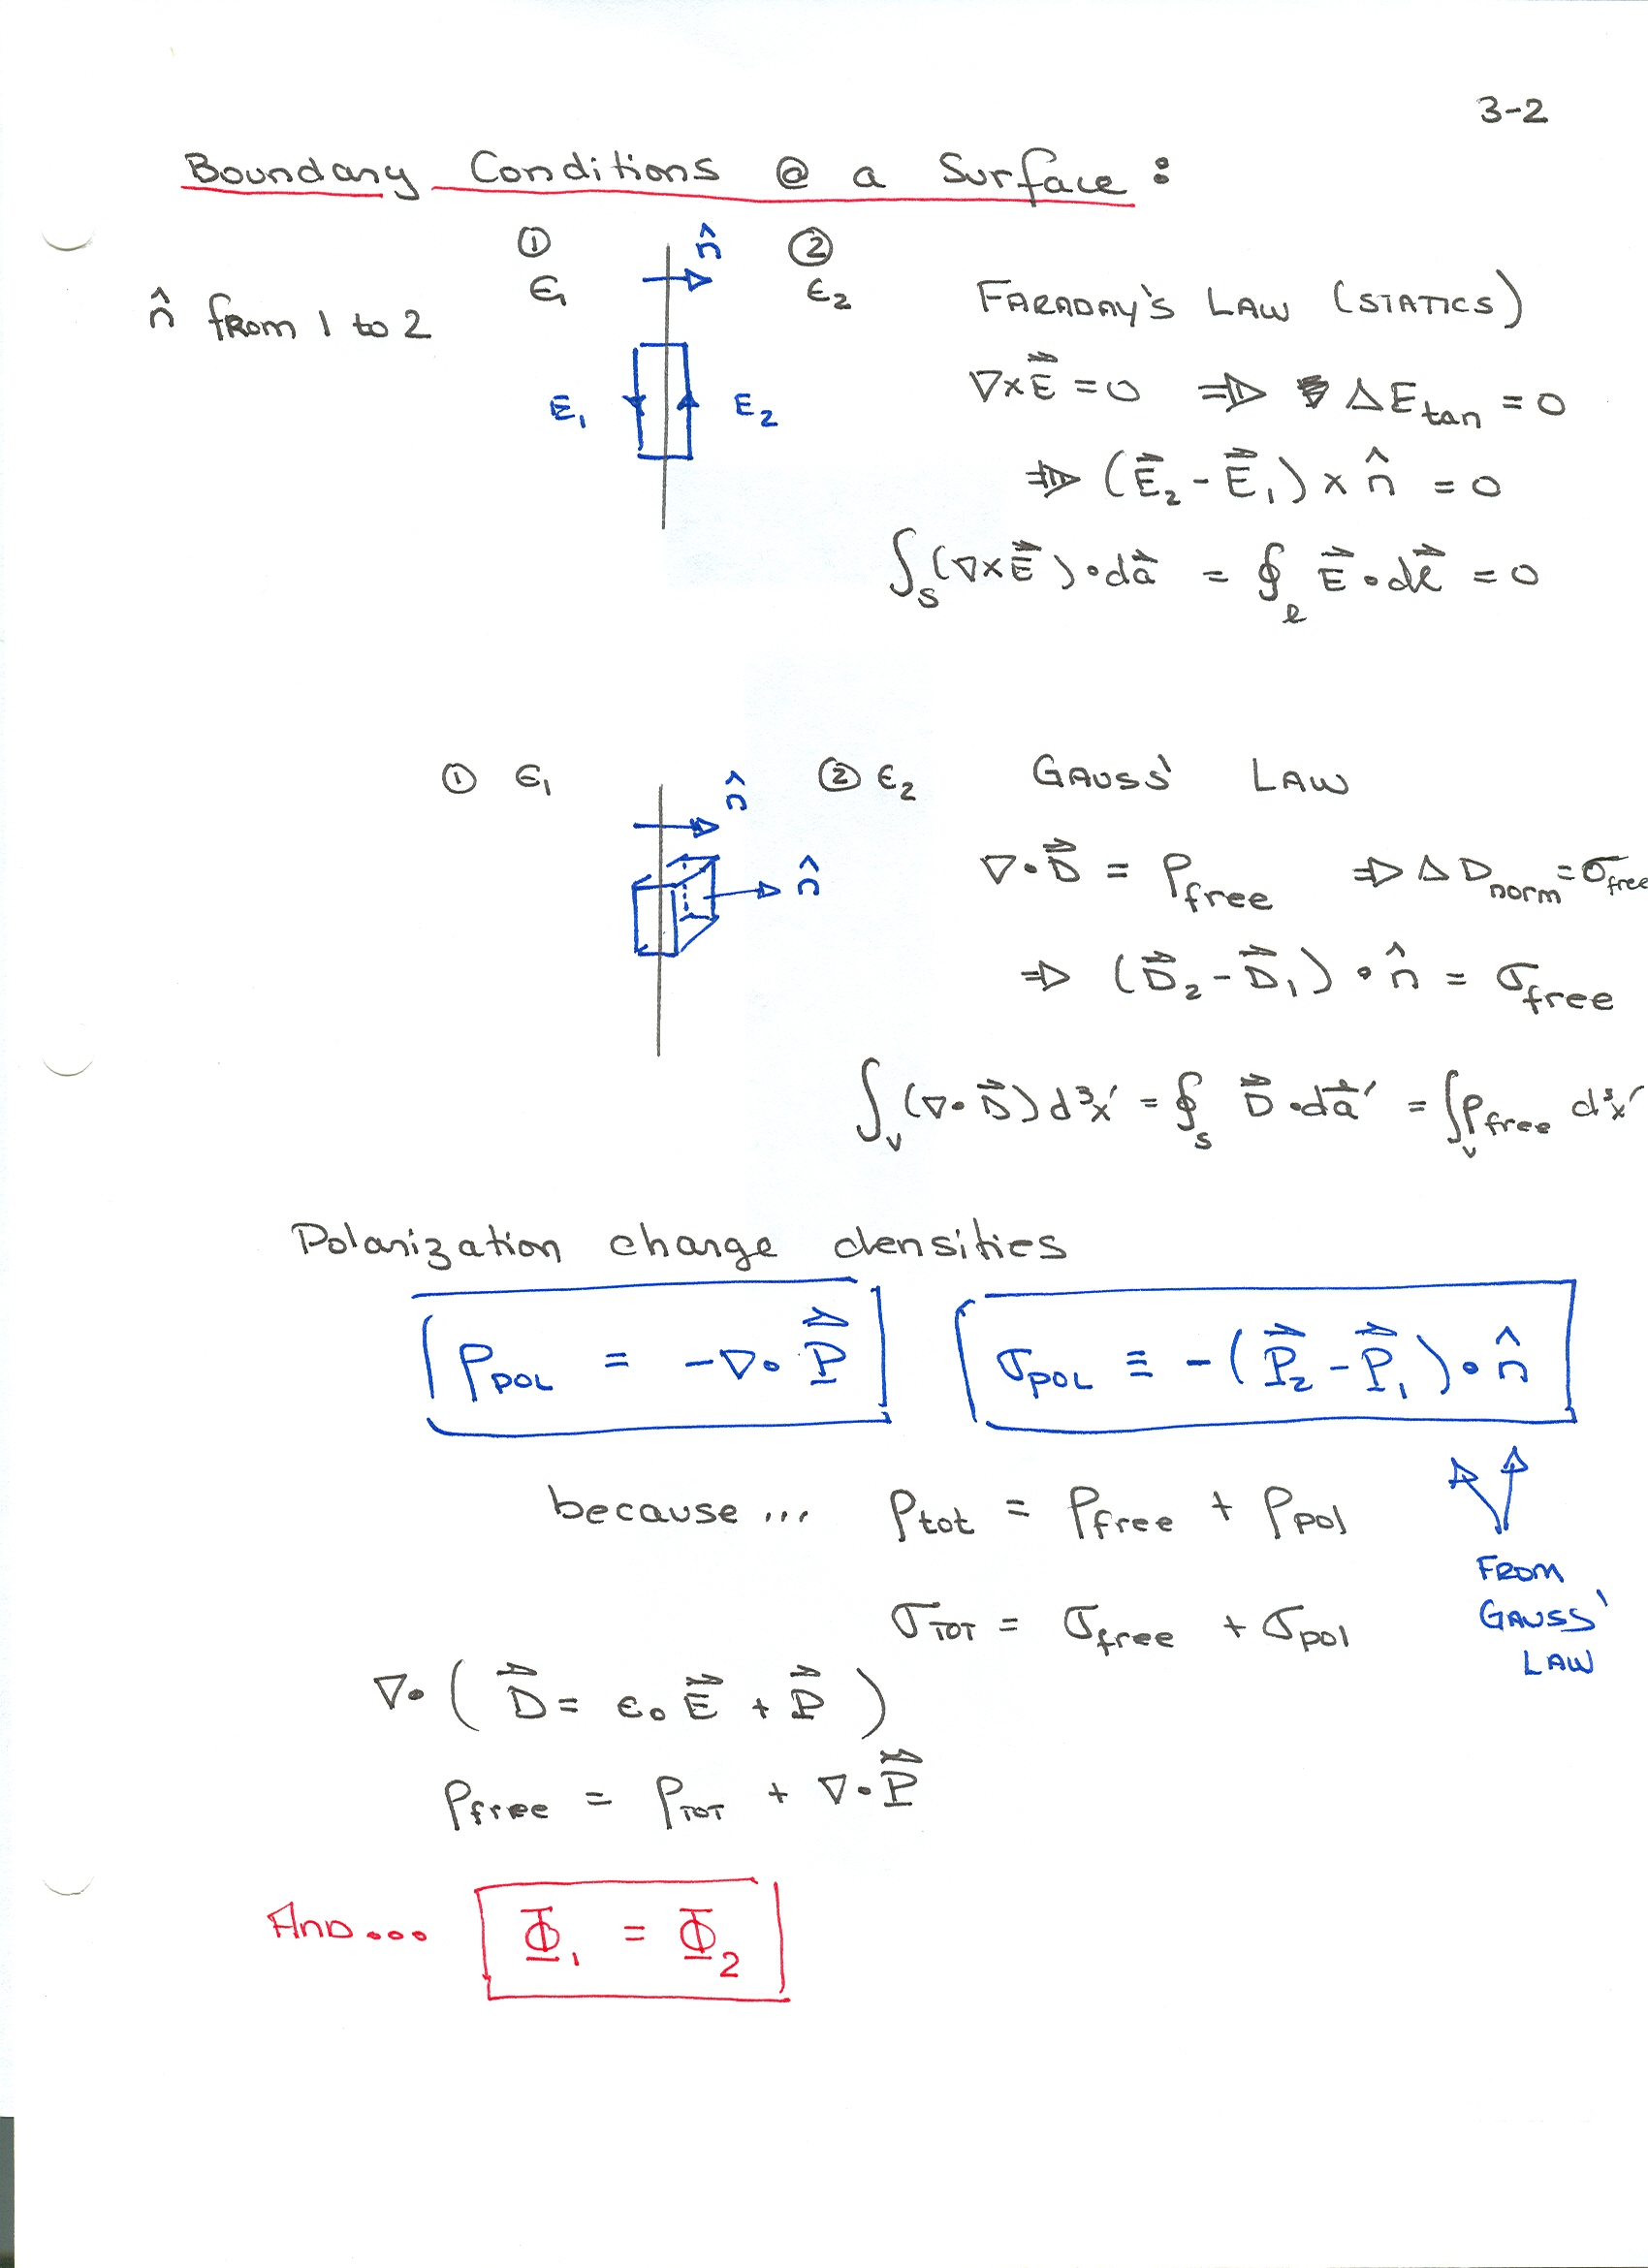 3-2
Boundary Conditions @ a Surface :
① n̂ ②
ε₁ ε₂
n̂ from 1 to 2
FARADAY'S LAW (STATICS)
∇×E⃗ = 0 ⇒ ΔE_tan = 0
E₁ E₂
⇒ (E⃗₂ - E⃗₁) × n̂ = 0
∫_S (∇×E⃗)·da⃗ = ∮_ℓ E⃗·dℓ⃗ = 0
① ε₁ n̂ ② ε₂ GAUSS' LAW
n̂
∇·D⃗ = ρ_free ⇒ ΔD_norm = σ_free
⇒ (D⃗₂ - D⃗₁)·n̂ = σ_free
∫_V (∇·D⃗) d³x' = ∮_S D⃗·da⃗' = ∫_V ρ_free d³x'
Polarization charge densities
ρ_POL = -∇·P⃗ σ_POL ≡ -(P⃗₂ - P⃗₁)·n̂
because... ρ_tot = ρ_free + ρ_pol
FROM
GAUSS'
LAW
σ_TOT = σ_free + σ_pol
∇·( D⃗ = ε₀ E⃗ + P⃗ )
ρ_free = ρ_TOT + ∇·P⃗
AND... Φ₁ = Φ₂